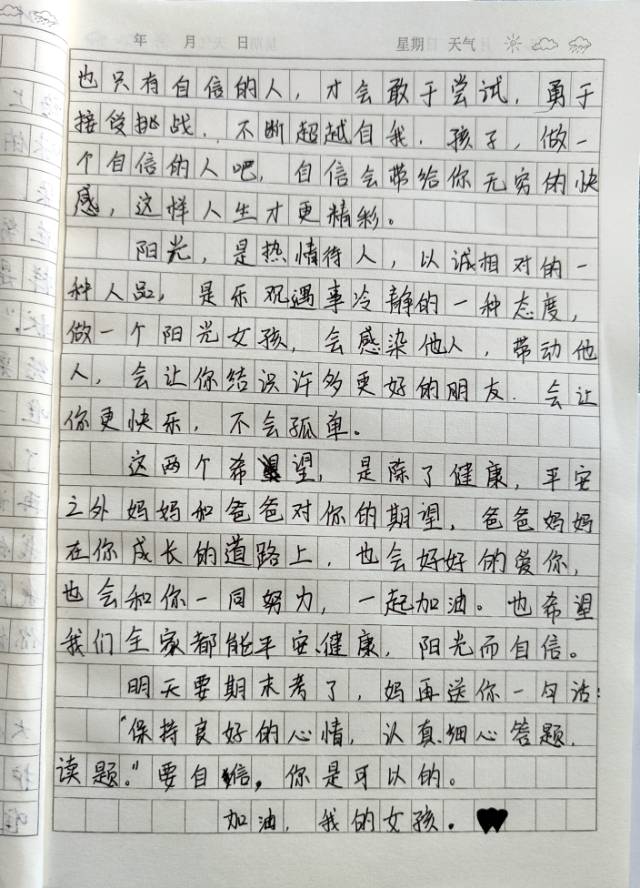 年 月 日 星期 天气
也只有自信的人，才会敢于尝试，勇于
接受挑战，不断超越自我．孩子，做一
个自信的人吧，自信会带给你无穷的快
感，这样人生才更精彩。
阳光，是热情待人，以诚相对的一
种人品，是乐观遇事冷静的一种态度，
做一个阳光女孩，会感染他人，带动他
人，会让你结识许多更好的朋友．会让
你更快乐，不会孤单。
这两个希望，是除了健康，平安
之外妈妈和爸爸对你的期望，爸爸妈妈
在你成长的道路上，也会好好的爱你，
也会和你一同努力，一起加油。也希望
我们全家都能平安、健康，阳光而自信。
明天要期末考了，妈再送你一句话：
“保持良好的心情，认真、细心答题，
读题。”要自信，你是可以的。
加油，我的女孩。